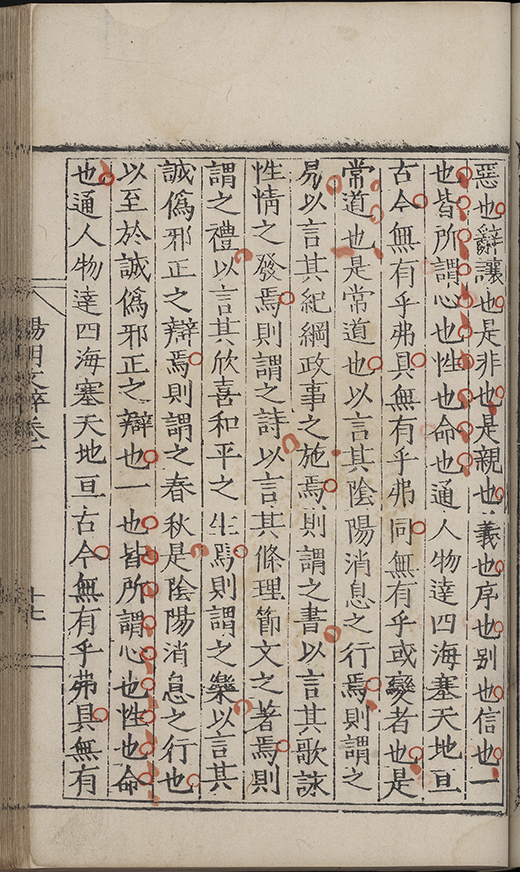 惡也辭讓也是非也是親也義也序也别也信也一
也皆所謂心也性也命也通人物達四海塞天地亘
古今無有乎弗具無有乎弗同無有乎或變者也是
常道也是常道也以言其陰陽消息之行焉則謂之
易以言其紀綱政事之施焉則謂之書以言其歌詠
性情之發焉則謂之詩以言其條理節文之著焉則
謂之禮以言其欣喜和平之生焉則謂之樂以言其
誠僞邪正之辯焉則謂之春秋是陰陽消息之行也
以至於誠僞邪正之辯也一也皆所謂心也性也命
也通人物達四海塞天地亘古今無有乎弗具無有
陽明文粹卷一
十七